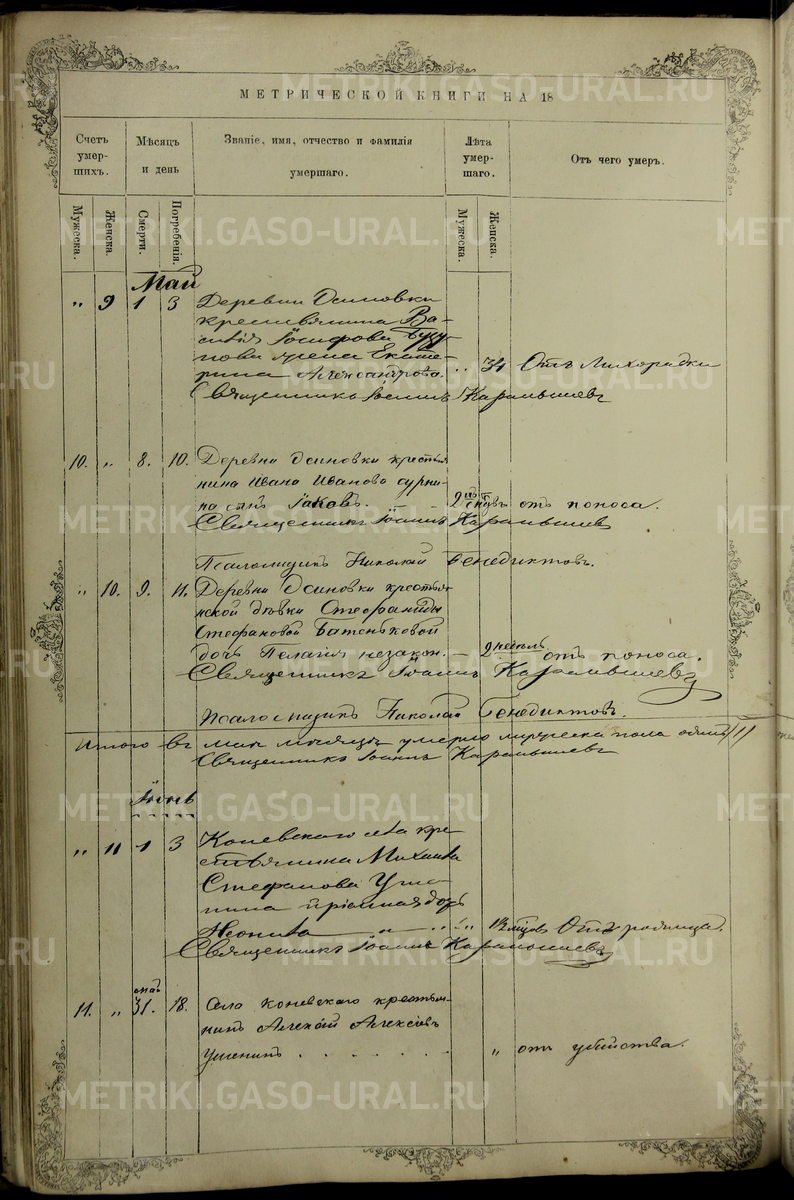 МЕТРИЧЕСКОЙ КНИГИ НА 18
Счетъ умершихъ.
Мѣсяцъ и день
Званіе, имя, отчество и фамилія умершаго.
Лѣта умершаго.
Отъ чего умеръ.
Мужеска.
Женска.
Смерти.
Погребенія.
Мужеска.
Женска.
Май
" 9 1 3 Деревни Осиновки
крестьянина Ва-
силія Іосифова
жена Екате-
рина Александрова. " 34 Отъ лихорадки
Священникъ Іоаннъ Карамышевъ
10. " 8. 10. Деревни Осиновки крестья
нина Ивана Иванова
сынъ Іаковъ. 2 отъ поноса.
Священникъ Іоаннъ Карамышев
Псаломщикъ Николай Бенедиктовъ.
" 10. 9. 11. Деревни Осиновки крестьян
ской дѣвки Стефаниды
Стефановой Батеньковой
дочь Пелагія незакон. 2 недѣль отъ поноса.
Священникъ Іоаннъ Карамышевъ
Псаломщикъ Николай Бенедиктовъ.
Итого въ маи мѣсяцѣ умерло мужеска пола одинъ /1/
Священникъ Іоаннъ Карамышевъ
Іюнь
" 11 1 3 Коневскаго села кре
стьянина Михаила
Стефанова Уше
нина пріемная дочь
Неонила " " 1½ мцов Отъ родимца.
Священникъ Іоаннъ Карамышевъ
маія
11. " 31. 18. Села Коневскаго крестья-
нинъ Алексій Алексіевъ
Ушенинъ " отъ убійства.
METRIKI.GASO-URAL.RU